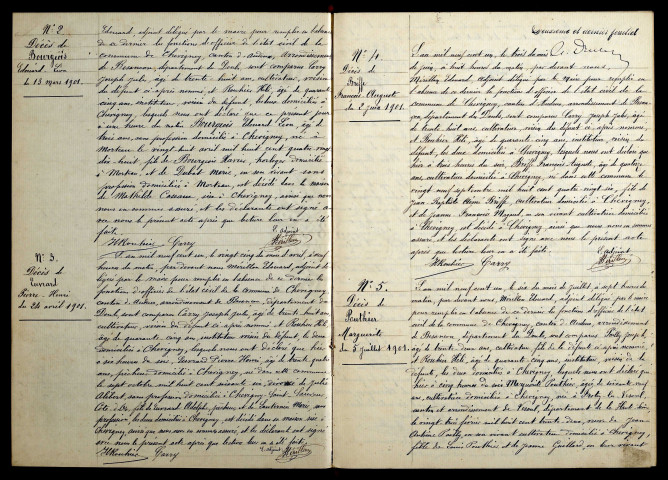 N° 2.
Décès de
Bourgeois
Edouard, Léon
le 13 mars 1901.
Edouard, adjoint délégué par le maire pour remplir en l'absence
de ce dernier les fonctions d'officier de l'état civil de la
commune de Chevigney, canton d'Audeux, arrondissement
de Besançon, département du Doubs, sont comparus Carry
Joseph Jules, âgé de trente huit ans, cultivateur, voisin
du défunt ci après nommé, et Rouhier Félix, âgé de quarante
cinq ans, instituteur, voisin du défunt, les deux domiciliés à
Chevigney, lesquels nous ont déclaré que ce présent jour
à une heure du matin Bourgeois Edouard Léon, âgé de
trois ans, sans profession domicilié à Chevigney, né à
Morteau le vingt huit avril mil huit cent quatre vingt
dix huit, fils de Bourgeois Xavier, horloger domicilié
à Morteau, et de Marie, en son vivant sans
profession domiciliée à Morteau, est décédé dans la maison
de Mathilde sise à Chevigney, ainsi que nous
nous en sommes assuré, et les déclarants ont signé avec
nous le présent acte après que lecture leur en a été
fait.
F. Rouhier Carry L'adjoint
N° 3.
Décès de
Pierre-Henri
du 24 avril 1901.
L'an mil neuf cent un, le vingt cinq du mois d'avril, à sept
heures du matin, par devant nous Edouard, adjoint dé-
ligué par le maire pour remplir en l'absence de ce dernier les
fonctions d'officier de l'état civil de la commune de Chevigney
canton d'Audeux, arrondissement de Besançon, département du
Doubs, sont comparus Carry Joseph Jules, âgé de trente huit ans
cultivateur, voisin du défunt ci après nommé et Rouhier Félix,
âgé de quarante cinq ans, instituteur, voisin du défunt, les deux
domiciliés à Chevigney, lesquels nous ont déclaré que hier
à six heures du soir, Pierre Henri, âgé de trente quatre
ans, domicilié à Chevigney,
le sept octobre mil huit cent soixante six,
sans profession domiciliée à Chevigney
Côte d'Or, fils de Adolphe,
profession, les deux domiciliés à Chevigney, est décédé dans sa maison sise à
Chevigney, ainsi que nous nous en sommes assuré, et les déclarants ont signé
avec nous le présent acte après que lecture leur en a été fait.
F. Rouhier Carry L'adjoint
Douzième et dernier feuillet
N° 4.
Décès de
Briffe
François-Auguste
du 2 juin 1901.
L'an mil neuf cent un, le trois du mois
de juin, à huit heures du matin, par devant nous,
Edouard, adjoint délégué par le Maire pour remplir en
l'absence de ce dernier les fonctions d'officier de l'état civil de la
commune de Chevigney, canton d'Audeux, arrondissement de Besan-
çon, département du Doubs, sont comparus Carry Joseph Jules, âgé
de trente huit ans, cultivateur, voisin du défunt ci après nommé,
et Rouhier Félix, âgé de quarante cinq ans, instituteur, voisin du
défunt, les deux domiciliés à Chevigney, lesquels nous ont déclaré que
hier à trois heures du soir, Briffe François Auguste, âgé de
ans, cultivateur domicilié à Chevigney, né dans cette commune le
vingt neuf septembre mil huit cent quatre vingt six, fils de
Jean Baptiste Briffe, cultivateur domicilié à Chevigney,
et de Jeanne Françoise en son vivant cultivatrice domiciliée
à Chevigney, est décédé à Chevigney, ainsi que nous nous en sommes
assuré, et les déclarants ont signé avec nous le présent acte
après que lecture leur en a été faite.
F. Rouhier Carry L'adjoint
N° 5.
Décès de
Pouthier
Marguerite
du 5 juillet 1901.
L'an mil neuf cent un, le six du mois de juillet, à sept heures du
matin, par devant nous, Edouard, adjoint délégué par le maire
pour remplir en l'absence de ce dernier les fonctions d'officier de l'état
civil de la commune de Chevigney canton d'Audeux, arrondissement
de Besançon, département du Doubs, sont comparus
âgé de trente deux ans, cultivateur, fils de la défunte ci après nommée,
et Rouhier Félix, âgé de quarante cinq ans, instituteur, voisin de la
défunte, les deux domiciliés à Chevigney, lesquels nous ont déclaré que
hier à cinq heures du soir Marguerite Pouthier, âgée de soixante neuf
ans, cultivatrice domiciliée à Chevigney, née à
canton et arrondissement de Vesoul, département de la Haute Saône,
le vingt trois février mil huit cent trente deux, veuve de Jean
Antoine en son vivant cultivateur domicilié à Chevigney,
fille de Pouthier et de Jeanne Gaillard, en leur vivant